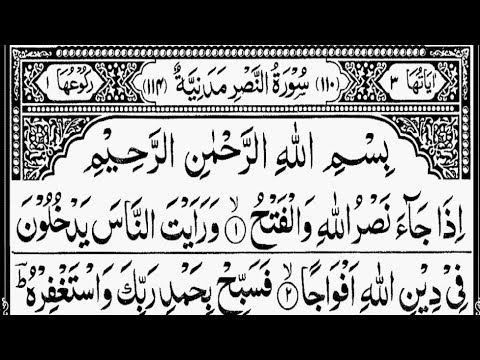 اٰيَاتُهَا ٣ (١١٠) سُوْرَةُ النَّصْرِ مَدَنِيَّةٌ (١١٤) رُكُوْعُهَا ١
بِسْمِ اللّٰهِ الرَّحْمٰنِ الرَّحِيْمِ
اِذَا جَآءَ نَصْرُ اللّٰهِ وَالْفَتْحُ ۙ﴿١﴾ وَرَاَيْتَ النَّاسَ يَدْخُلُوْنَ
فِيْ دِيْنِ اللّٰهِ اَفْوَاجًا ۙ﴿٢﴾ فَسَبِّحْ بِحَمْدِ رَبِّكَ وَاسْتَغْفِرْهُ ؕ